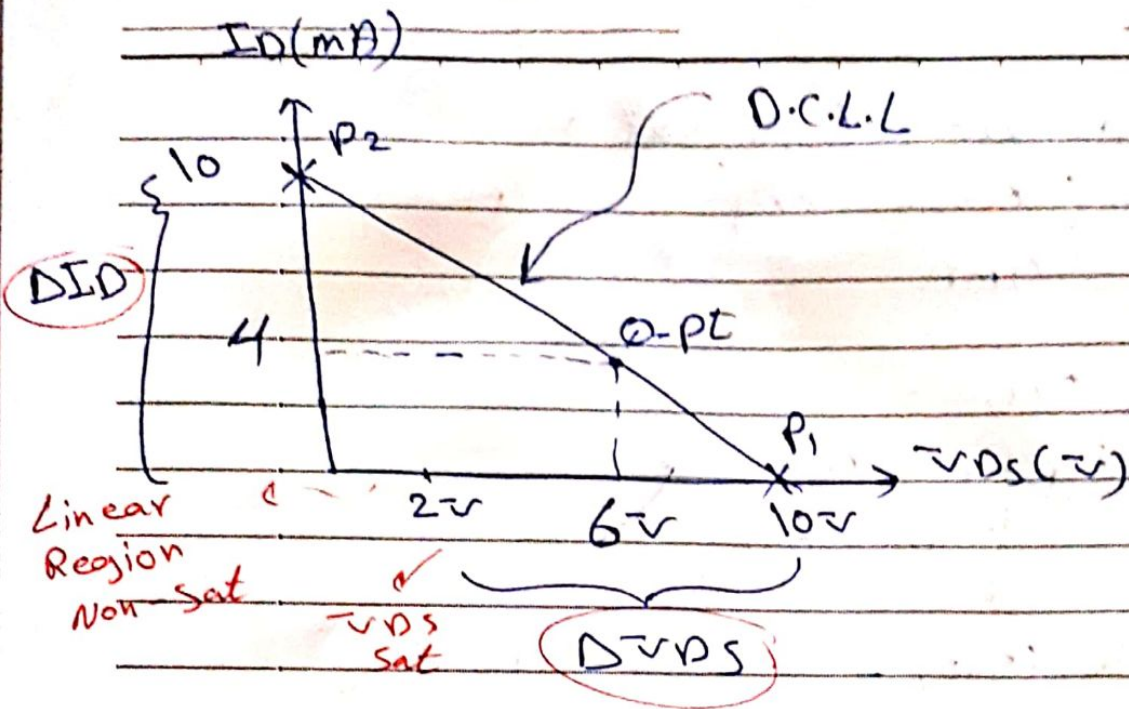 ID(mA)
D.C.L.L
P2
10
ΔID
4
Q-pt
P1
VDS(V)
2V
6V
10V
Linear
Region
Non-Sat
VDS
Sat
ΔVDS